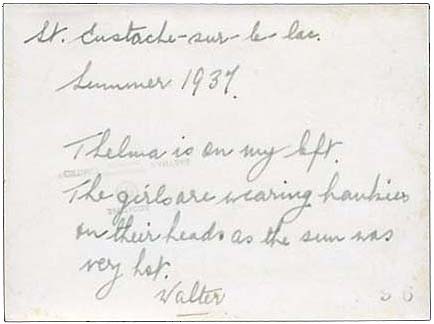 St. Eustache-sur-le-lac.
Summer 1937.
Thelma is on my left.
The girls are wearing hankies
on their heads as the sun was
very hot.
Walter